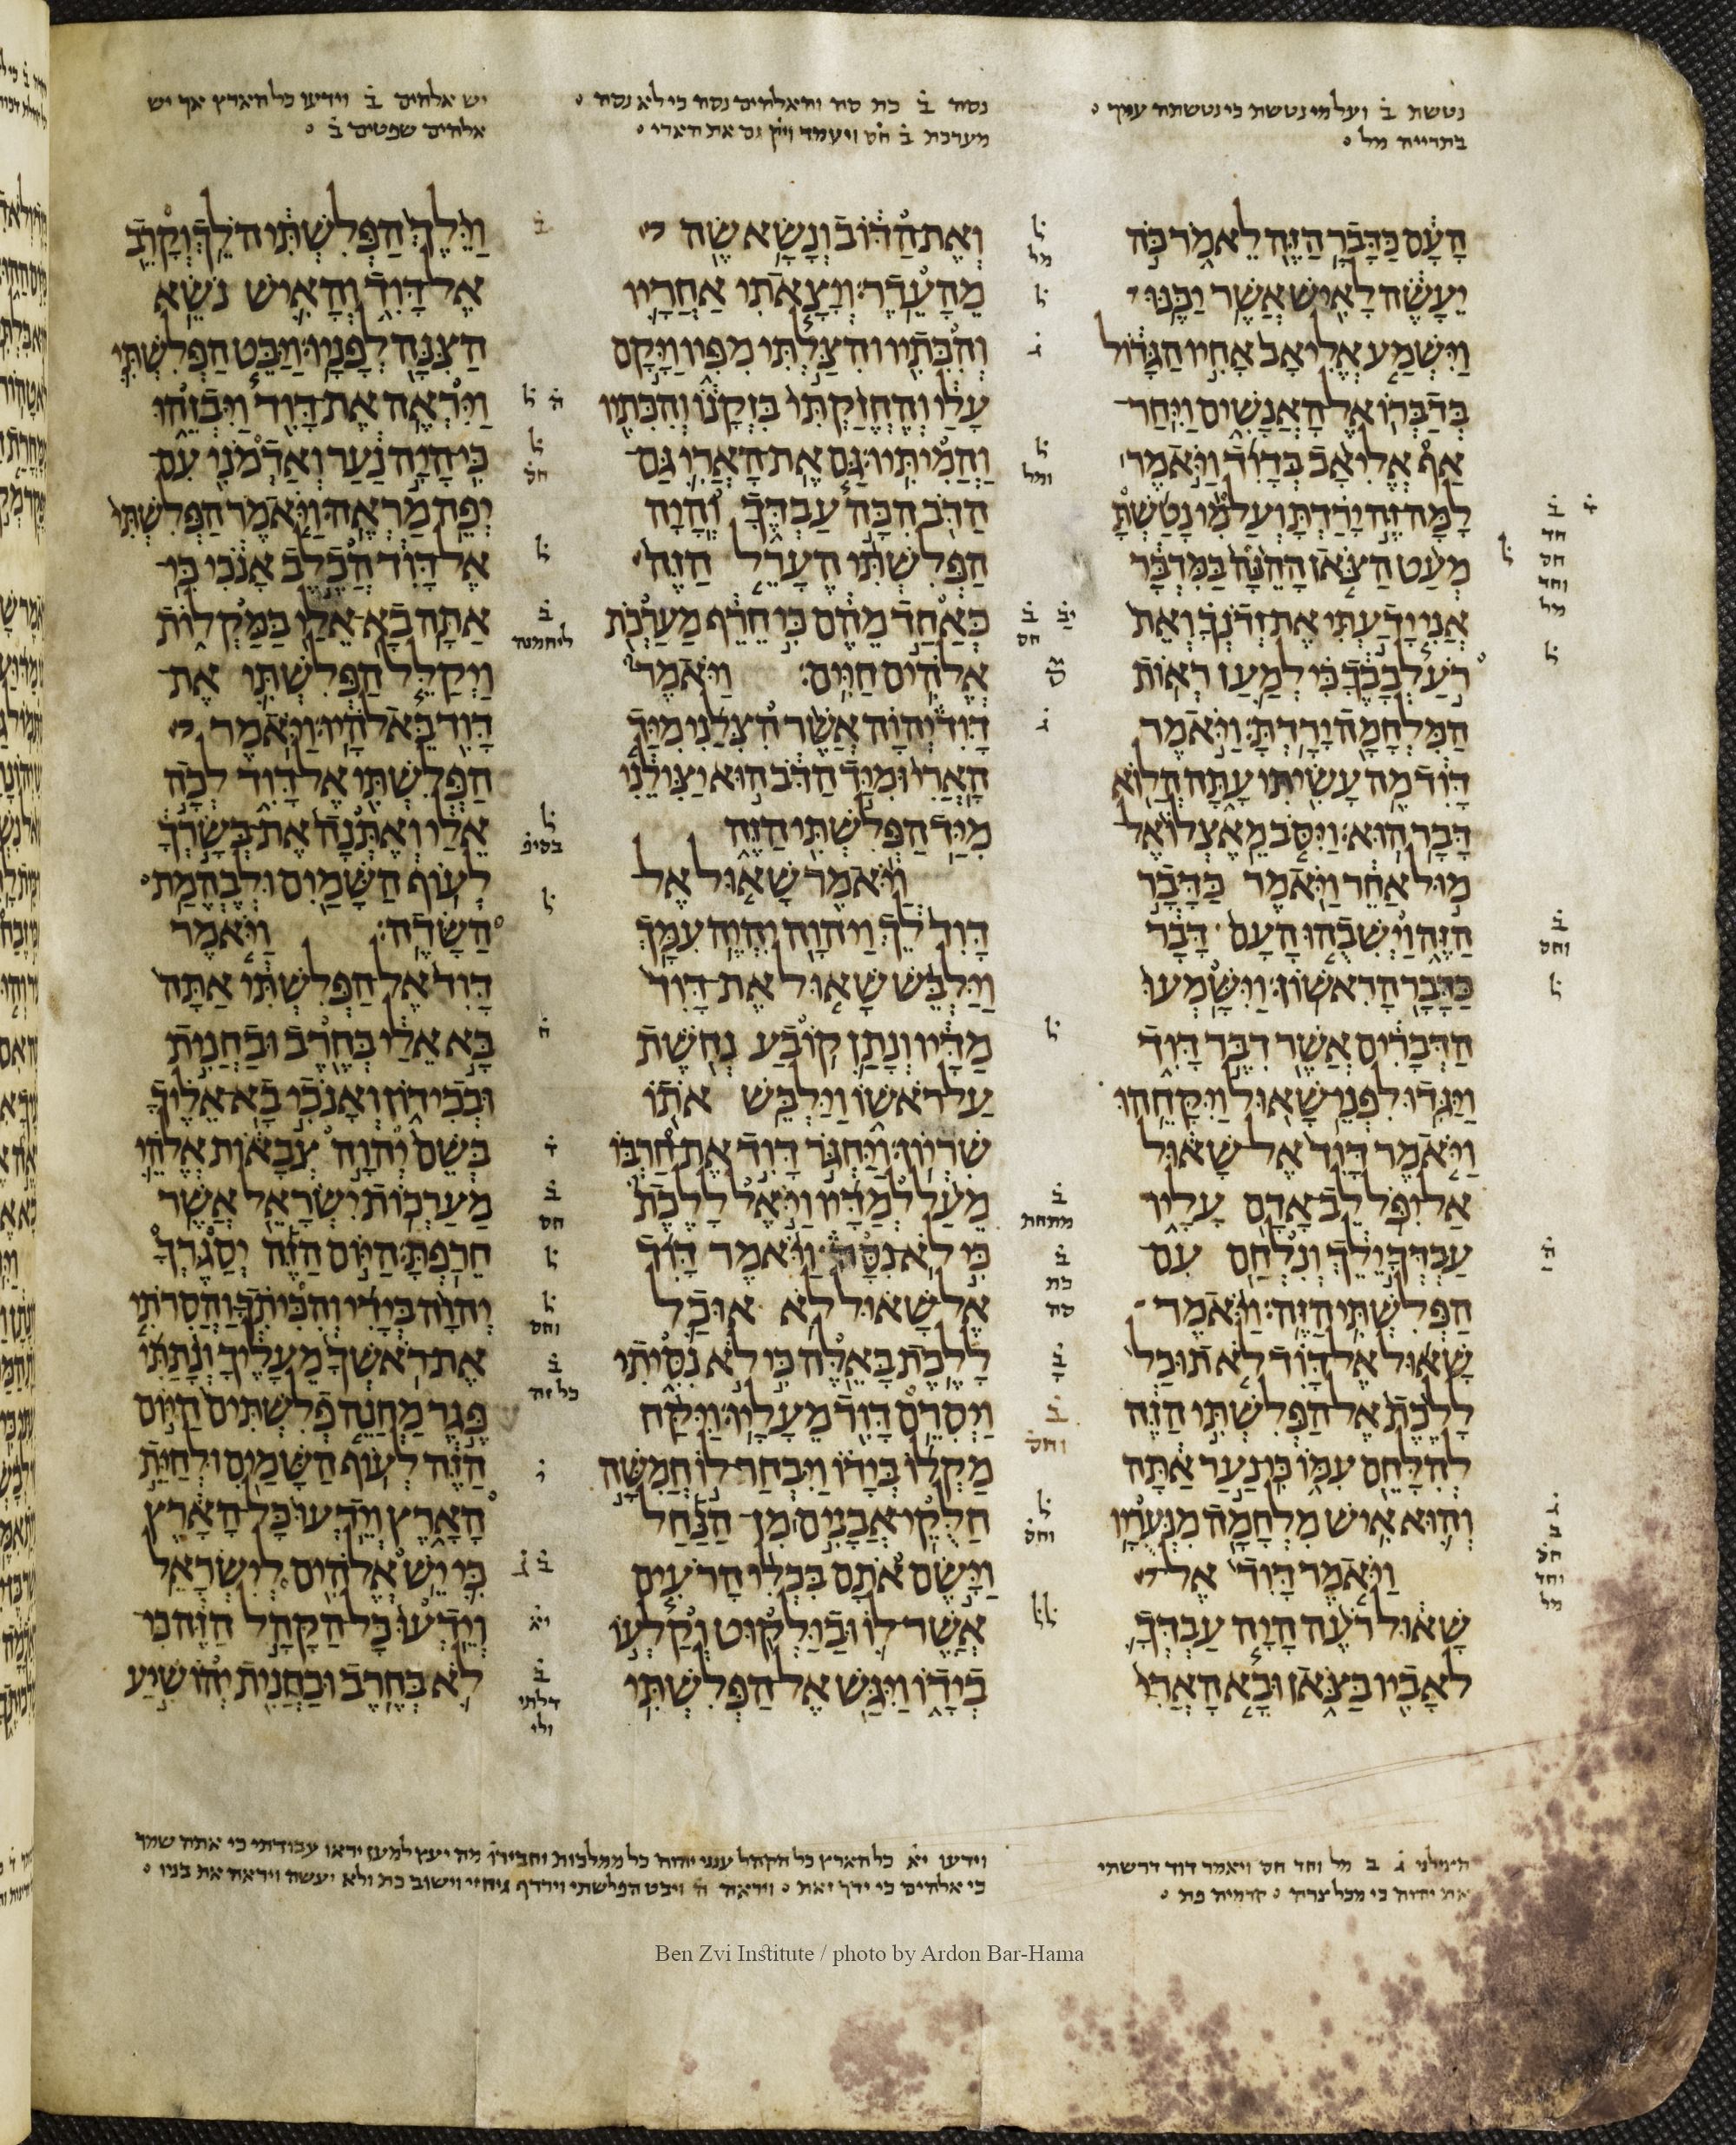 נטשת ב ועל מי נטשת כי נטשתה עמך
בתרייה מל
נסה ב כת סה והאלהים נסה כי לא נסה
מערכת ב חס ויעמד ויק גם את הארי
יש אלהים ב וידעו כל הארץ אך יש
אלהים שפטים ב
העם כדבר הזה לאמר כה
יעשה לאיש אשר יכנו
וישמע אליאב אחיו הגדול
בדברו אל האנשים ויחר
אף אליאב בדוד ויאמר
למה זה ירדת ועל מי נטשת
מעט הצאן ההנה במדבר
אני ידעתי את זדנך ואת
רע לבבך כי למען ראות
המלחמה ירדת׃ ויאמר
דוד מה עשיתי עתה הלוא
דבר הוא׃ ויסב מאצלו אל
מול אחר ויאמר כדבר
הזה וישבהו העם דבר
כדבר הראשון׃ וישמעו
הדברים אשר דבר דוד
ויגדו לפני שאול ויקחהו
ויאמר דוד אל שאול
אל יפל לב אדם עליו
עבדך ילך ונלחם עם
הפלשתי הזה׃ ויאמר
שאול אל דוד לא תוכל
ללכת אל הפלשתי הזה
להלחם עמו כי נער אתה
והוא איש מלחמה מנעריו
ויאמר דוד אל
שאול רעה היה עבדך
לאביו בצאן ובא הארי
ואת הדוב ונשא שה
מהעדר׃ ויצאתי אחריו
והכתיו והצלתי מפיו ויקם
עלי והחזקתי בזקנו והכתיו
והמיתיו׃ גם את הארי גם
הדב הכה עבדך והיה
הפלשתי הערל הזה
כאחד מהם כי חרף מערכת
אלהים חיים׃ ויאמר
דוד יהוה אשר הצלני מיד
הארי ומיד הדב הוא יצילני
מיד הפלשתי הזה
ויאמר שאול אל
דוד לך ויהוה יהיה עמך
וילבש שאול את דוד
מדיו ונתן קובע נחשת
על ראשו וילבש אתו
שריון׃ ויחגר דוד את חרבו
מעל למדיו ויאל ללכת
כי לא נסה ויאמר דוד
אל שאול לא אוכל
ללכת באלה כי לא נסיתי
ויסרם דוד מעליו׃ ויקח
מקלו בידו ויבחר לו חמשה
חלקי אבנים מן הנחל
וישם אתם בכלי הרעים
אשר לו ובילקוט וקלעו
בידו ויגש אל הפלשתי
וילך הפלשתי הלך וקרב
אל דוד והאיש נשא
הצנה לפניו׃ ויבט הפלשתי
ויראה את דוד ויבזהו
כי היה נער ואדמני עם
יפה מראה׃ ויאמר הפלשתי
אל דוד הכלב אנכי כי
אתה בא אלי במקלות
ויקלל הפלשתי את
דוד באלהיו׃ ויאמר
הפלשתי אל דוד לכה
אלי ואתנה את בשרך
לעוף השמים ולבהמת
השדה׃ ויאמר
דוד אל הפלשתי אתה
בא אלי בחרב ובחנית
ובכידון ואנכי בא אליך
בשם יהוה צבאות אלהי
מערכות ישראל אשר
חרפת׃ היום הזה יסגרך
יהוה בידי והכיתך והסרתי
את ראשך מעליך ונתתי
פגר מחנה פלשתים היום
הזה לעוף השמים ולחית
הארץ וידעו כל הארץ
כי יש אלהים לישראל
וידעו כל הקהל הזה כי
לא בחרב ובחנית יהושיע
וידעו יא כל הארץ כל הקהל ענני יהוה כל ממלכות
כי אלהים כי ידך זאת ויראה ה ויבט הפלשתי וירדף גיחזי וישוב כת ולא יעשה ויראה את בניו
Ben Zvi Institute / photo by Ardon Bar-Hama